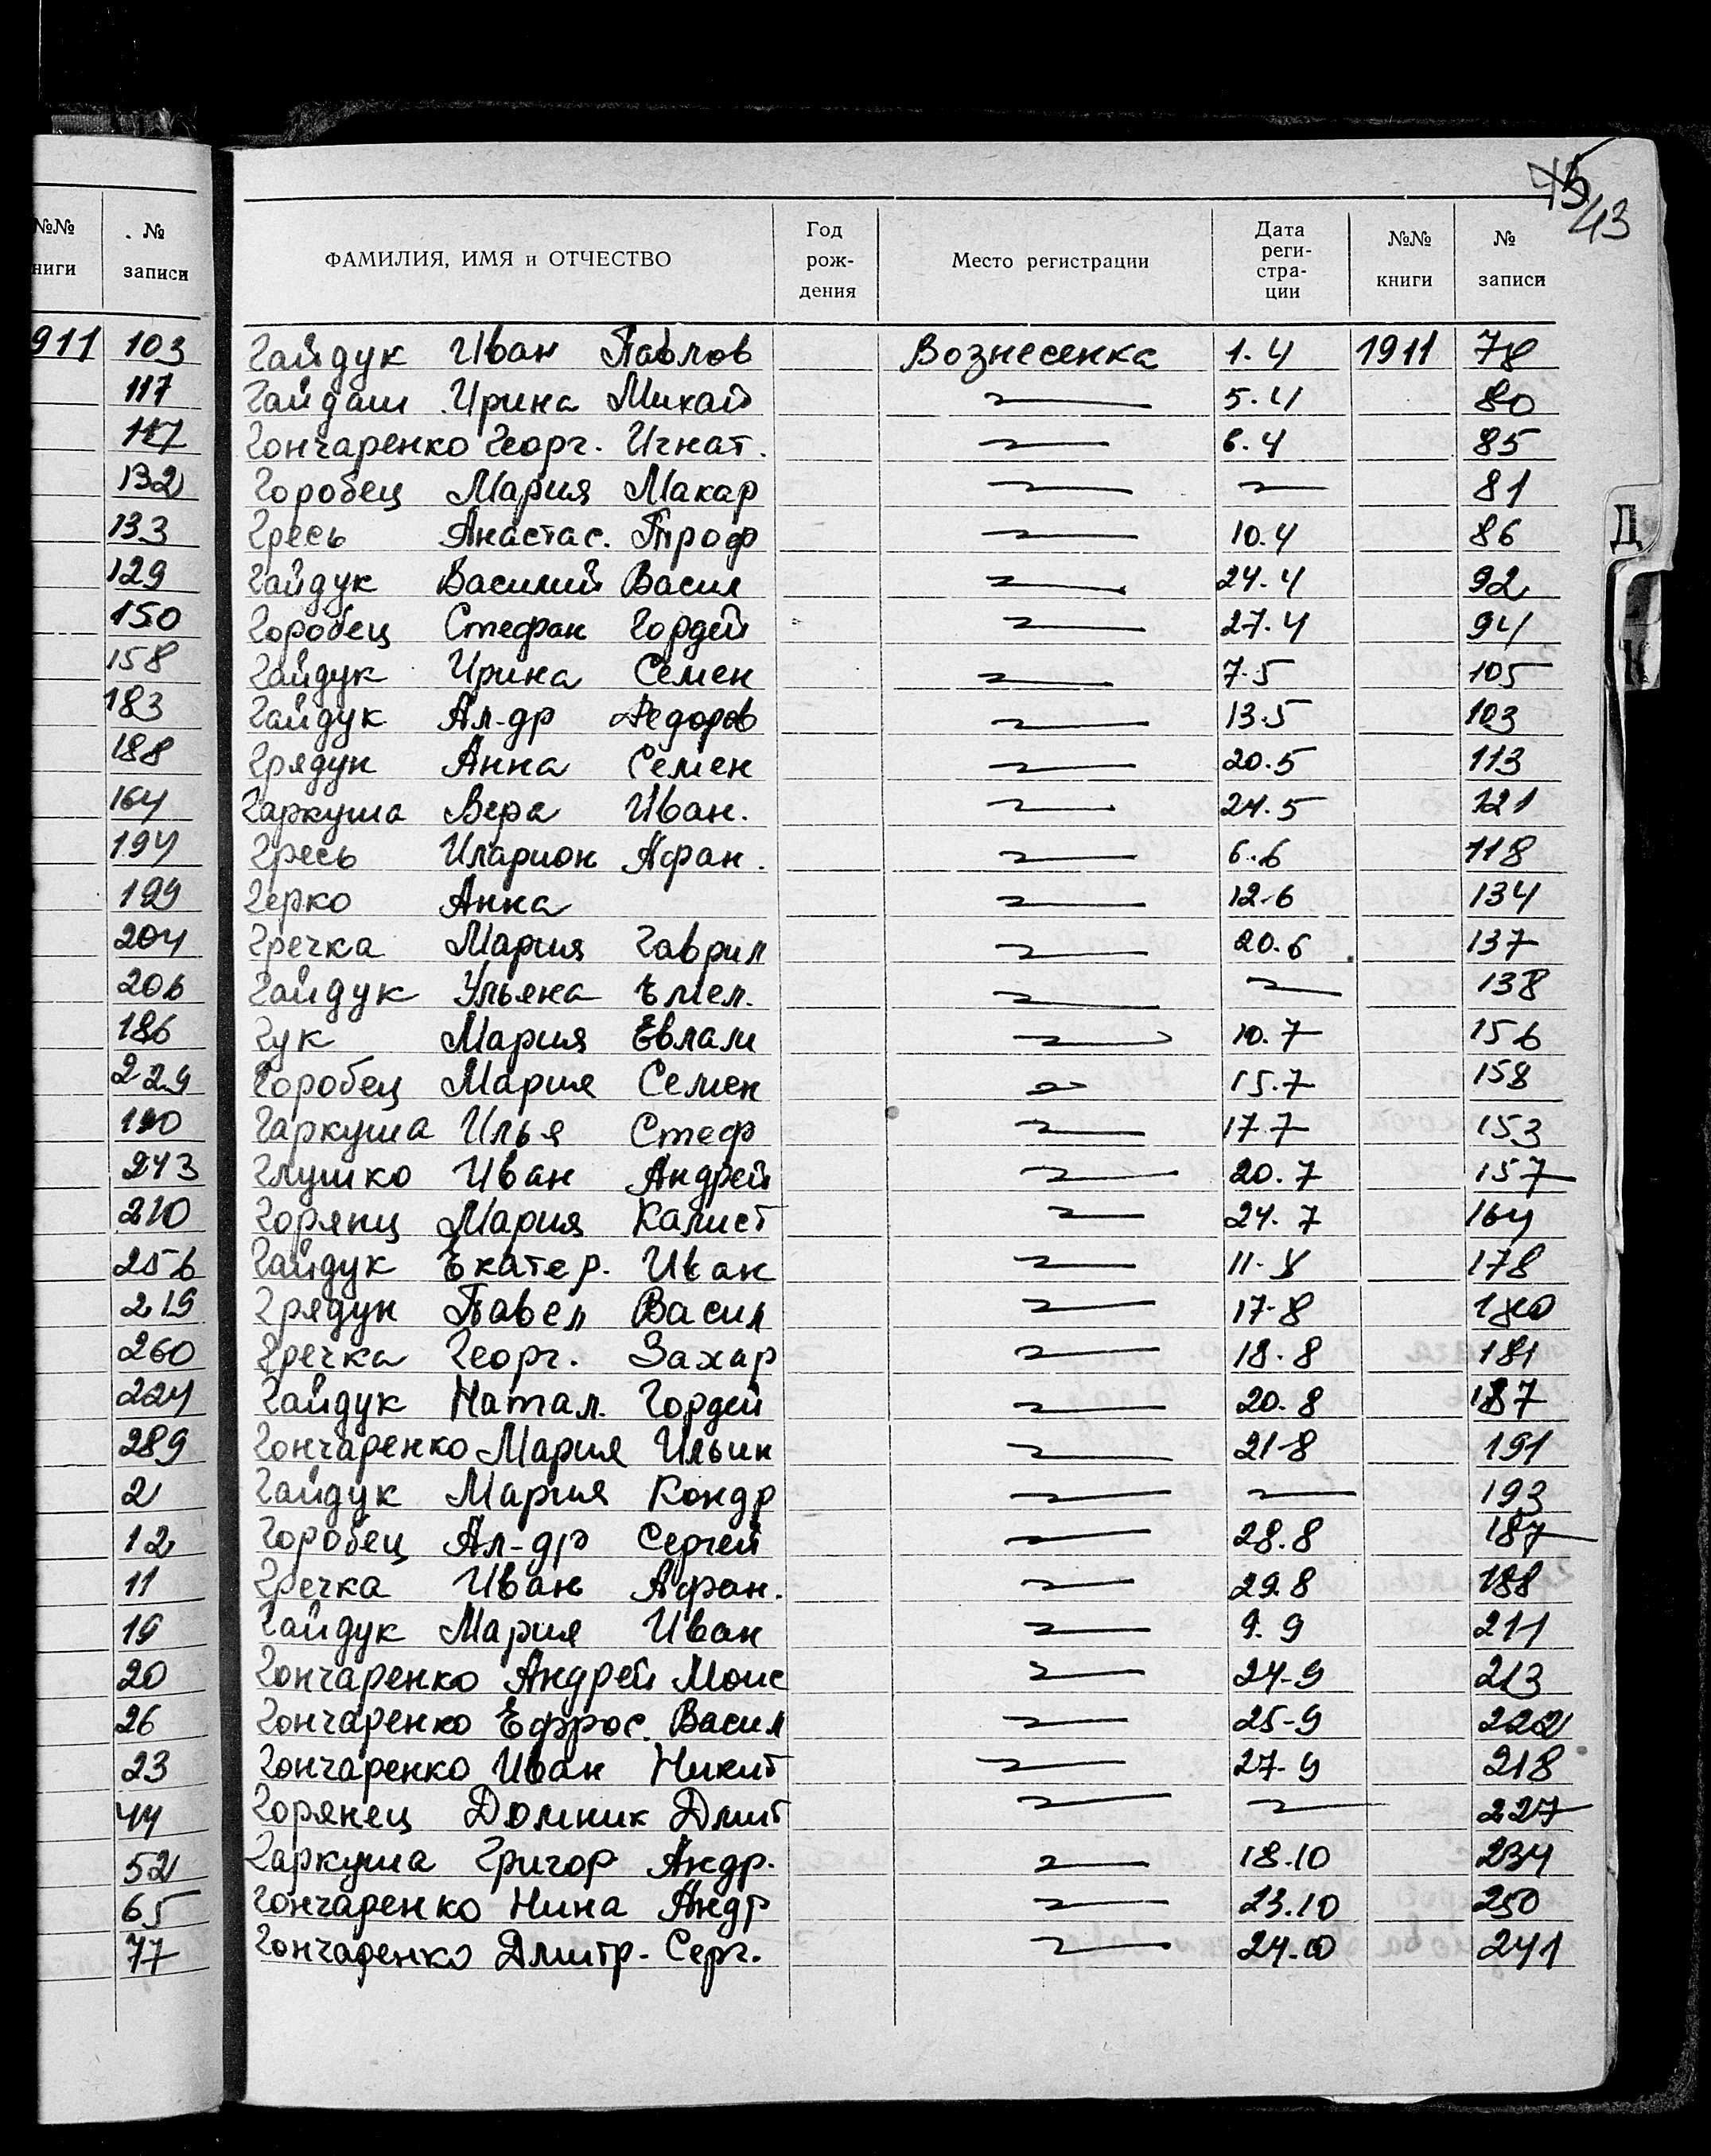 45 43
№№ книги № записи
ФАМИЛИЯ, ИМЯ и ОТЧЕСТВО Год рождения Место регистрации Дата регистрации №№ книги № записи
911 103
117
117
132
133
129
150
158
183
188
164
194
199
204
206
186
229
190
243
210
256
219
260
224
289
2
12
11
19
20
26
23
44
52
65
77
Гайдук Иван Павлов Вознесенка 1.4 1911 78
Гайдаш Ирина Михай 5.4 80
Гончаренко Георг. Игнат. 6.4 85
Горобец Мария Макар 81
Гресь Анастас. Троф 10.4 86
Гайдук Василий Васил 24.4 92
Горобец Стефан Гордей 27.4 94
Гайдук Ирина Семен 7.5 105
Гайдук Ал-др Федоров 13.5 103
Грядун Анна Семен 20.5 113
Гаркуша Вера Иван. 24.5 121
Гресь Иларион Афан. 6.6 118
Герко Анна 12.6 134
Гречка Мария Гаврил 20.6 137
Гайдук Ульяна Емел. 138
Гук Мария Евлам 10.7 156
Горобец Мария Семен 15.7 158
Гаркуша Илья Стеф 17.7 153
Глушко Иван Андрей 20.7 157
Горянц Мария Калист 24.7 164
Гайдук Екатер. Иван 11.8 178
Грядун Павел Васил 17-8 180
Гречка Георг. Захар 18.8 181
Гайдук Натал. Гордей 20.8 187
Гончаренко Мария Ильин 21-8 191
Гайдук Мария Кондр 193
Горобец Ал-др Сергей 28.8 187
Гречка Иван Афан. 29.8 188
Гайдук Мария Иван 9.9 211
Гончаренко Андрей Моис 24-9 213
Гончаренко Ефрос. Васил 25-9 222
Гончаренко Иван Никит 27-9 218
Горянец Домник Дмит 227
Гаркуша Григор Андр. 18.10 234
Гончаренко Нина Андр 23.10 250
Гончаренко Дмитр. Серг. 24.10 241
Д
К